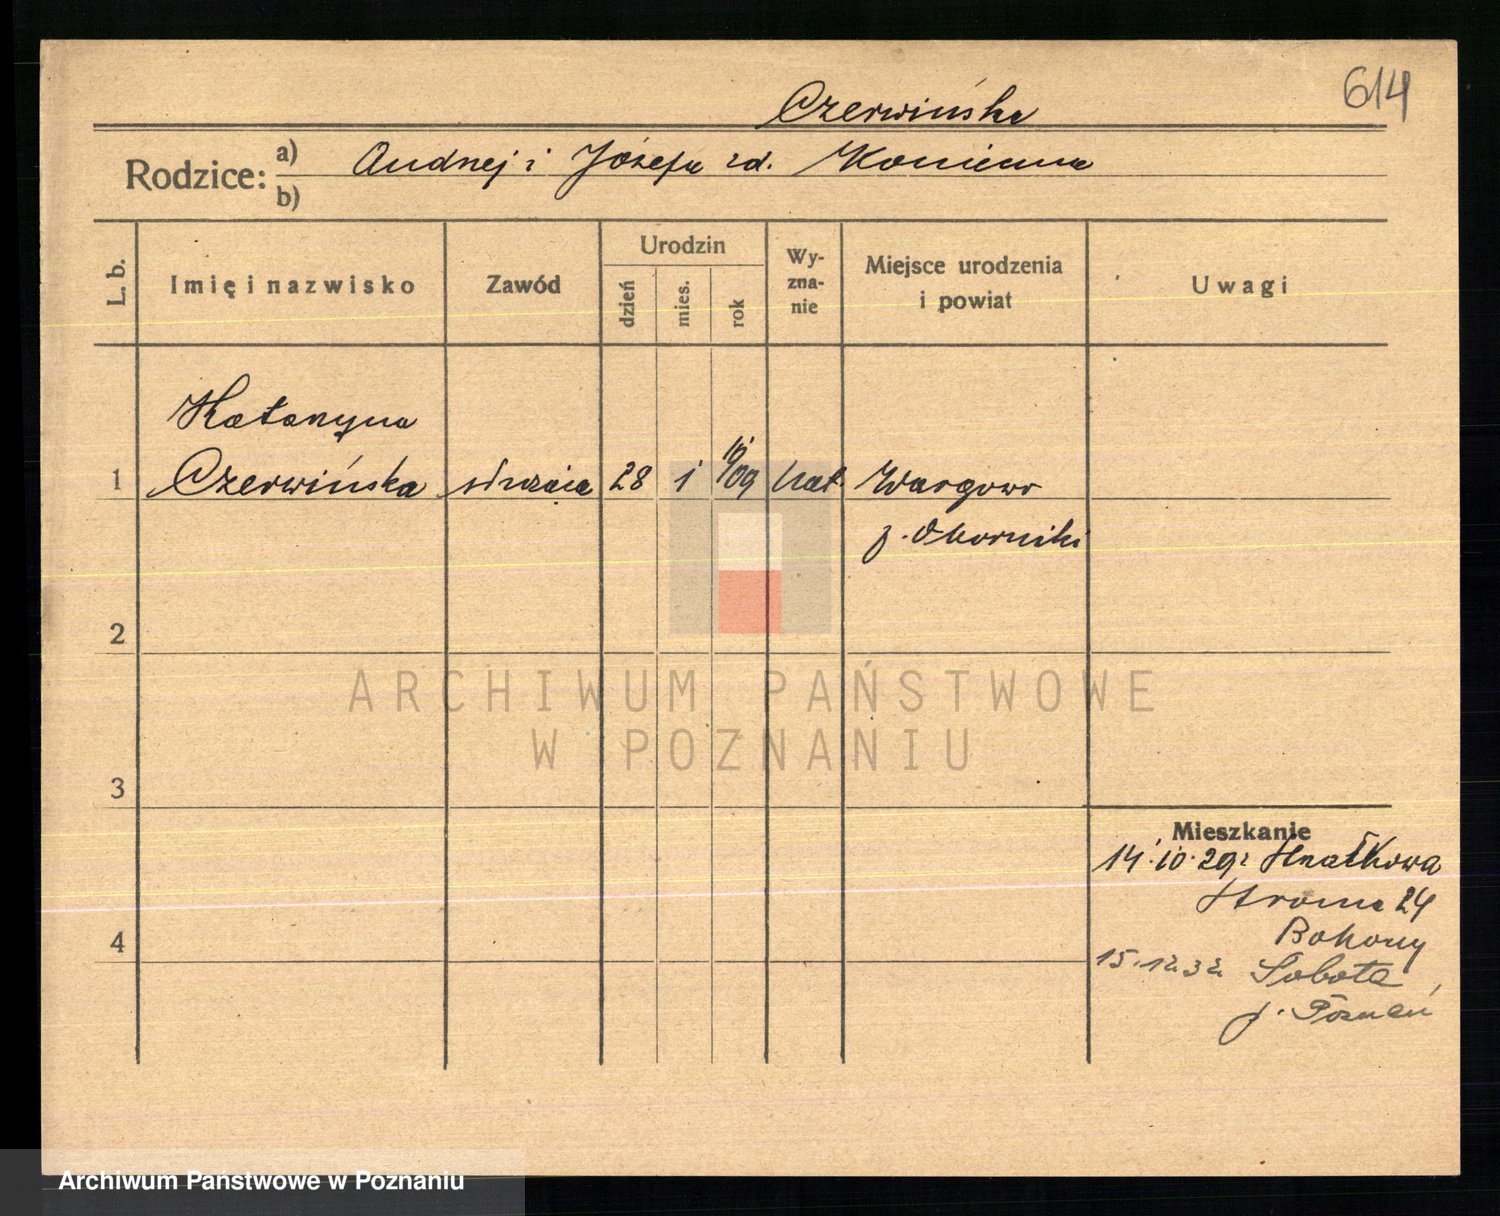 614
Czerwińska
Rodzice: a) Andrzej i Józefa zd. Konieczna
b)
L. b.
Imię i nazwisko
Zawód
Urodzin
dzień
mies.
rok
Wy-
zna-
nie
Miejsce urodzenia
i powiat
Uwagi
Katarzyna
1 Czerwińska służąca 28 1 09 kat. Wargowo
p. Oborniki
2
ARCHIWUM PAŃSTWOWE
W POZNANIU
3
Mieszkanie
14.10.29 Hnatkowa
Stroma 24
4
15.12.32 Sobota
p. Poznań
Archiwum Państwowe w Poznaniu